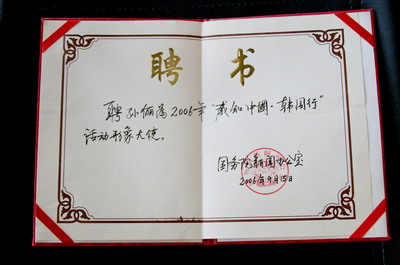 聘书
聘孙俪为2006年“感知中国·韩国行”
活动形象大使。
国务院新闻办公室
2006年9月15日